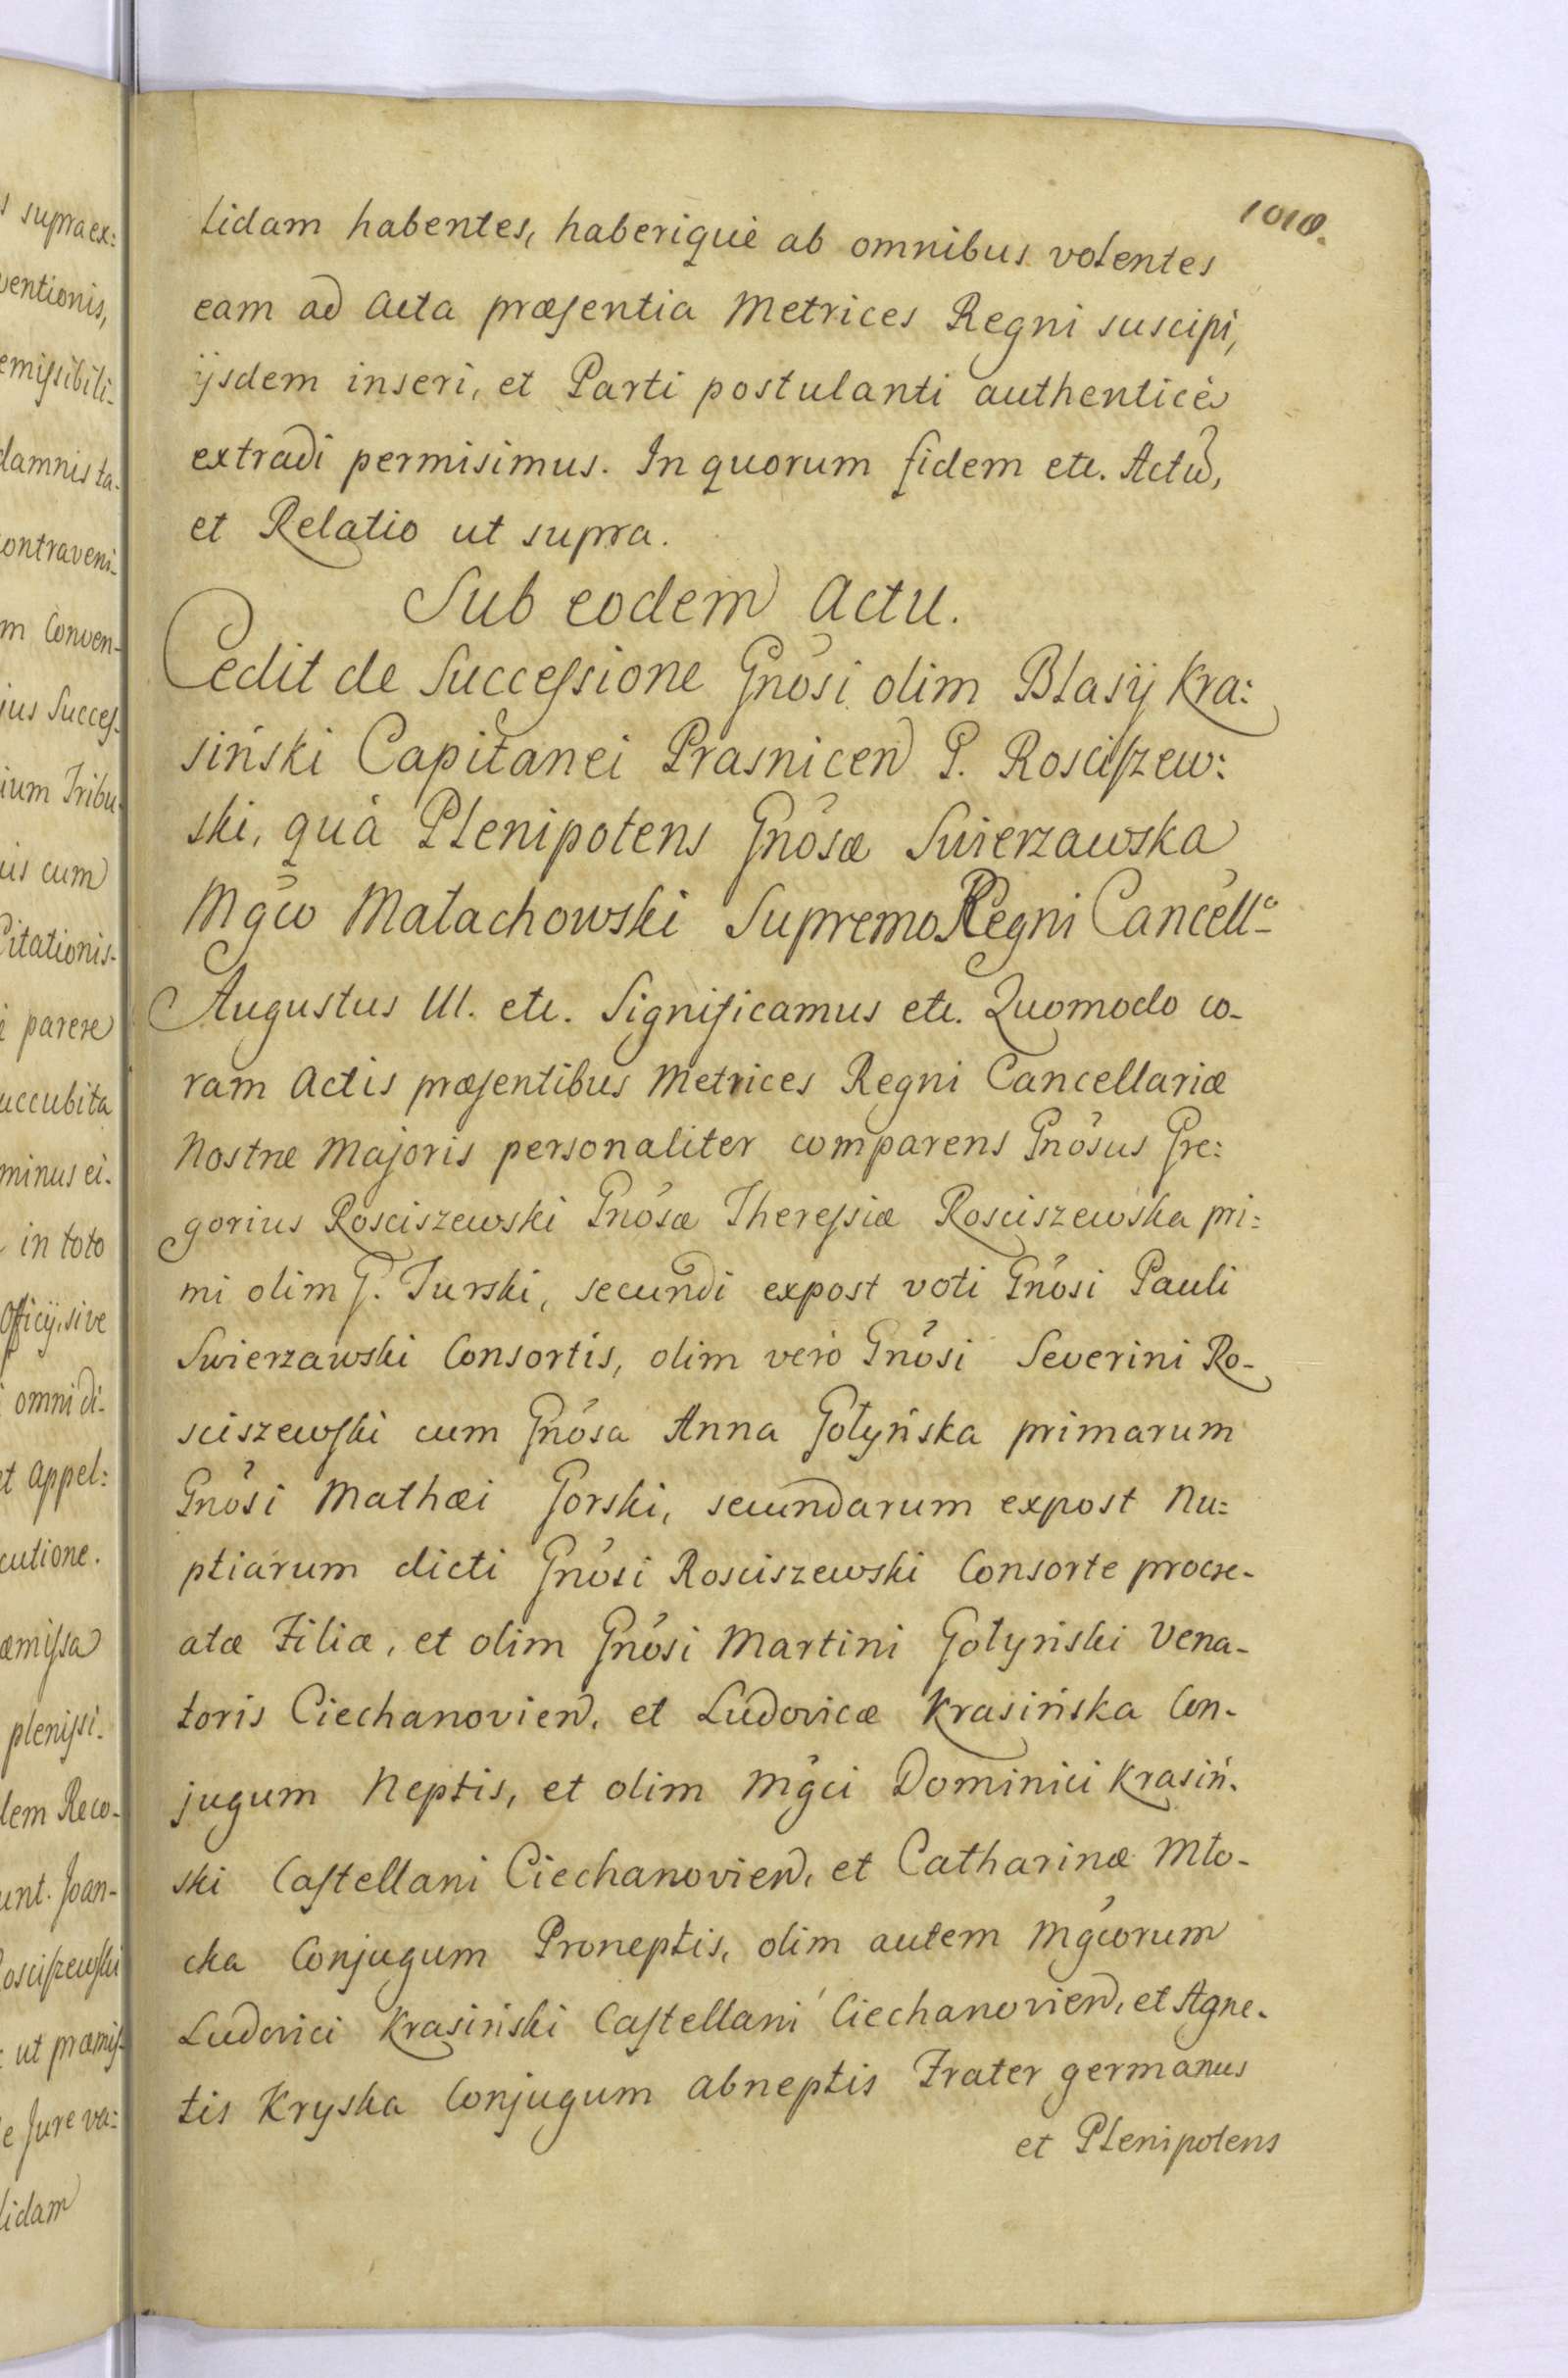 1010.
lidam habentes, haberique ab omnibus volentes
eam ad Acta præsentia Metrices Regni suscipi,
ijsdem inseri, et Parti postulanti authenticè
extradi permisimus. In quorum fidem etc. Actũ,
et Relatio ut supra.
Sub eodem Actu.
Cedit de Successione Gnosi olim Blasij Kra:
siński Capitanei Prasnicen G. Rosciszew:
ski, quà Plenipotens Gnosæ Swierzawska
Mgco Małachowski Supremo Regni Cancellº
Augustus III. etc. Significamus etc. Quomodo co-
ram Actis præsentibus Metrices Regni Cancellariæ
Nostræ Majoris personaliter comparens Gnosus Gre:
gorius Rosciszewski Gnosæ Theressiæ Rosciszewska pri:
mi olim G. Turski, secundi expost voti Gnosi Pauli
Swierzawski Consortis, olim verò Gnosi Severini Ro-
sciszewski cum Gnosa Anna Gołyńska primarum
Gnosi Mathæi Gorski, secundarum expost Nu:
ptiarum dicti Gnosi Rosciszewski Consorte procre-
atæ Filiæ, et olim Gnosi Martini Gołyński Vena-
toris Ciechanovien. et Ludovicæ Krasińska Con-
jugum Neptis, et olim Mgci Dominici Krasiń-
ski Castellani Ciechanovien, et Catharinæ Mło-
cka Conjugum Proneptis, olim autem Mgcorum
Ludovici Krasiński Castellani Ciechanovien, et Agne-
tis Kryska Conjugum abneptis Frater germanus
et Plenipotens
s supra ex:
ventionis,
emissibili-
damnis ta-
contraveni-
m Conven-
jus Succes-
ium Tribu-
is cum
Citationis-
parere
uccubita
minus ei-
in toto
Officij, sive
omni di-
et appel:
cutione.
æmissa
plenissi-
dem Reco-
unt. Joan-
osciszewski
ut præmis-
e Jure va:
lidam